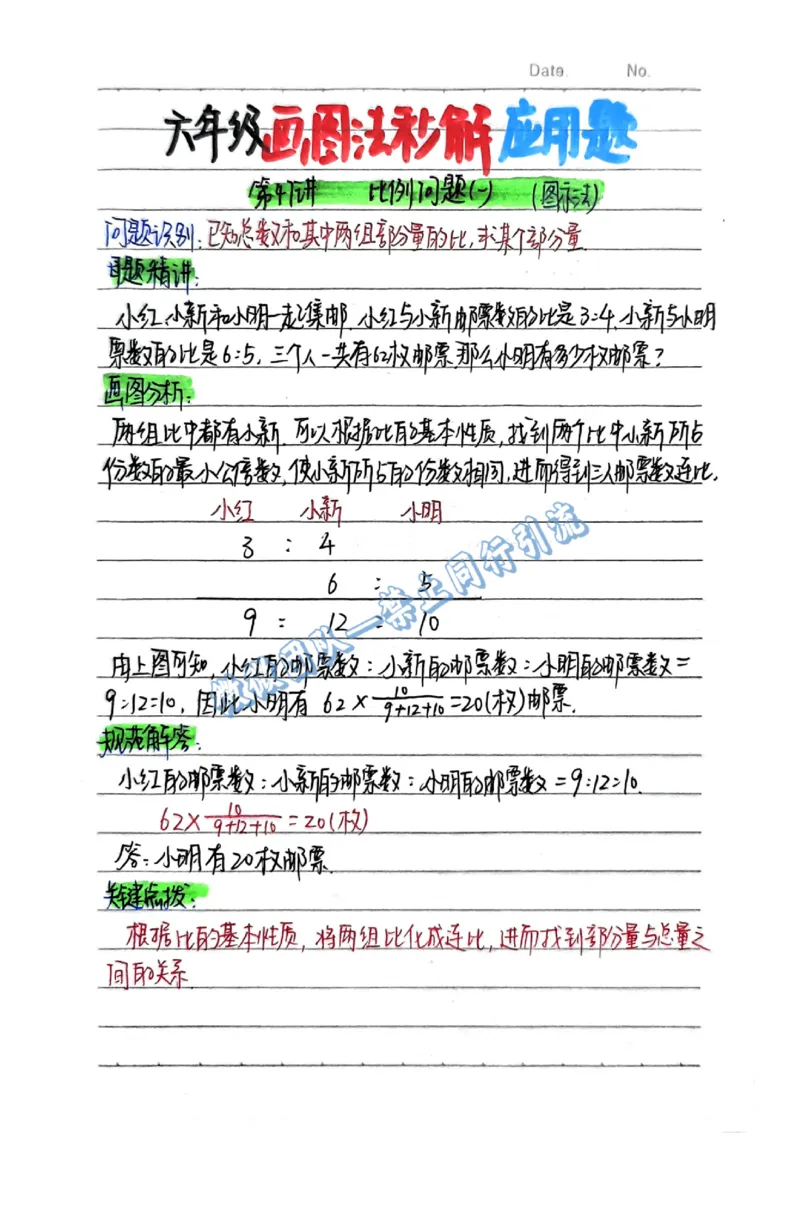 Date.  No.
六年级画图法秒解应用题
第47讲 比例问题(一) (图示法)
问题识别:已知总数和其中两组部分量的比,求某个部分量
母题精讲:
小红、小新和小明一起集邮,小红与小新邮票数的比是3:4,小新与小明
票数的比是6:5,三个人一共有62枚邮票,那么小明有多少枚邮票?
画图分析:
两组比中都有小新,可以根据比的基本性质,找到两个比中小新所占
份数的最小公倍数,使小新所占的份数相同,进而得到三人邮票数连比.
小红 小新 小明
3 : 4
6 : 5
9 : 12 : 10
由上图可知,小红的邮票数:小新的邮票数:小明的邮票数=
9:12:10,因此小明有 62×10/(9+12+10)=20(枚)邮票.
规范解答:
小红的邮票数:小新的邮票数:小明的邮票数=9:12:10.
62×10/(9+12+10)=20(枚)
答:小明有20枚邮票.
关键点拨:
根据比的基本性质,将两组比化成连比,进而找到部分量与总量之
间的关系
团队—禁止同行引流